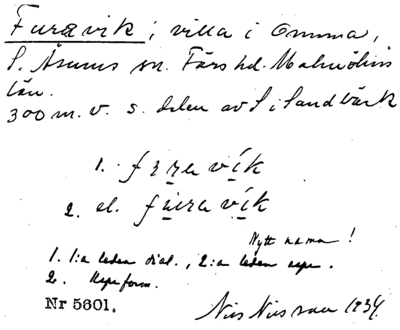 Furavik; villa i Omma,
S. Åsums sn. Färs hd. Malmöhus
län.
300 m. v. s. delen av S i Sandbäck
1.
2. el.
Nytt namn!
1. 1:a leden dial., 2:a leden rspr.
2. Rspr form.
Nr 5601. Nils Nilsson 1934.